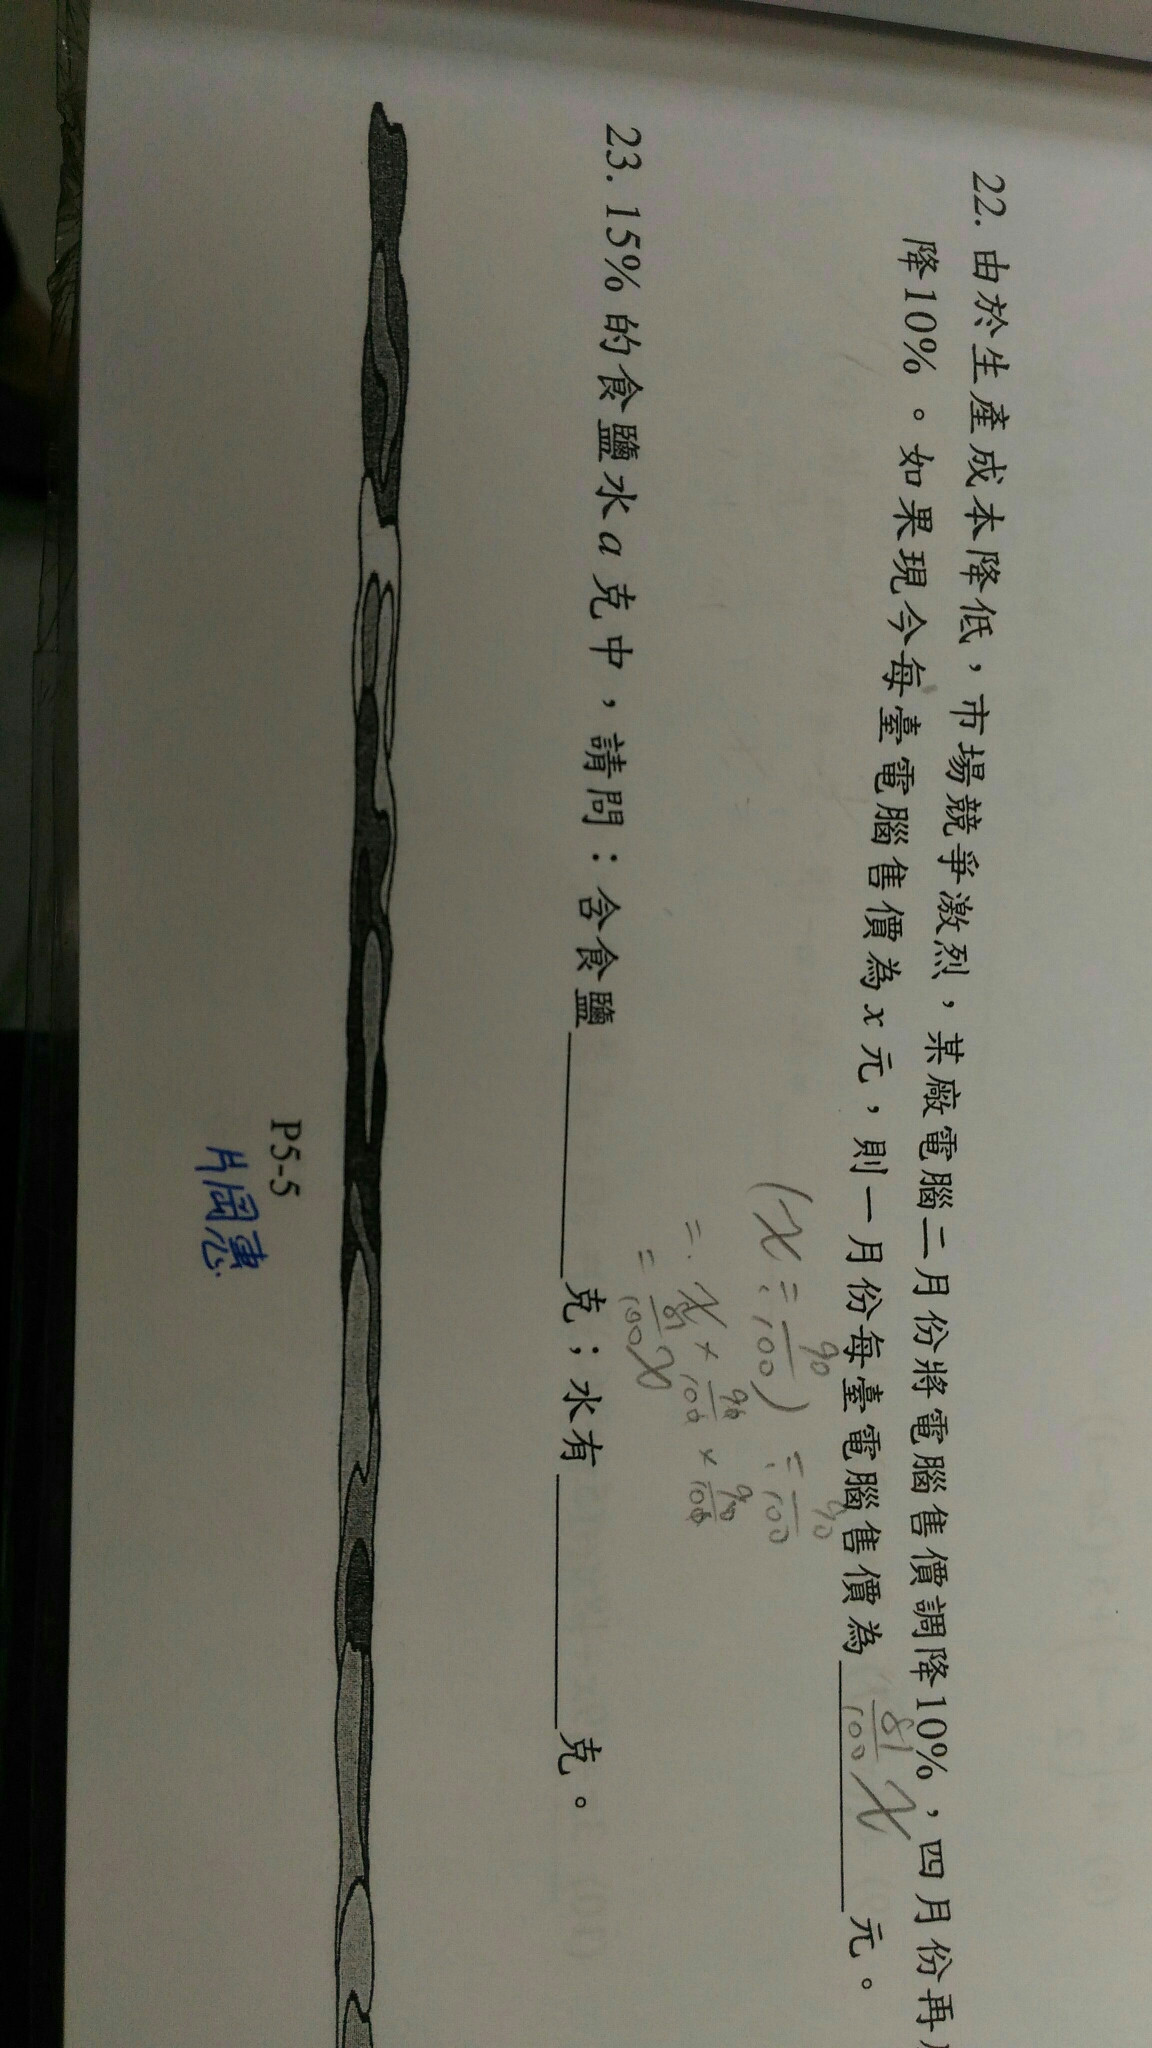 22. 由於生產成本降低，市場競爭激烈，某廠電腦二月份將電腦售價調降10%，四月份再
降10%。如果現今每臺電腦售價為x元，則一月份每臺電腦售價為 81/100 x 元。
(x ÷ 90/100) ÷ 90/100
= x × 90/100 × 90/100
= 81/100 x
23. 15%的食鹽水a克中，請問：含食鹽________克；水有________克。
P5-5
片岡惠